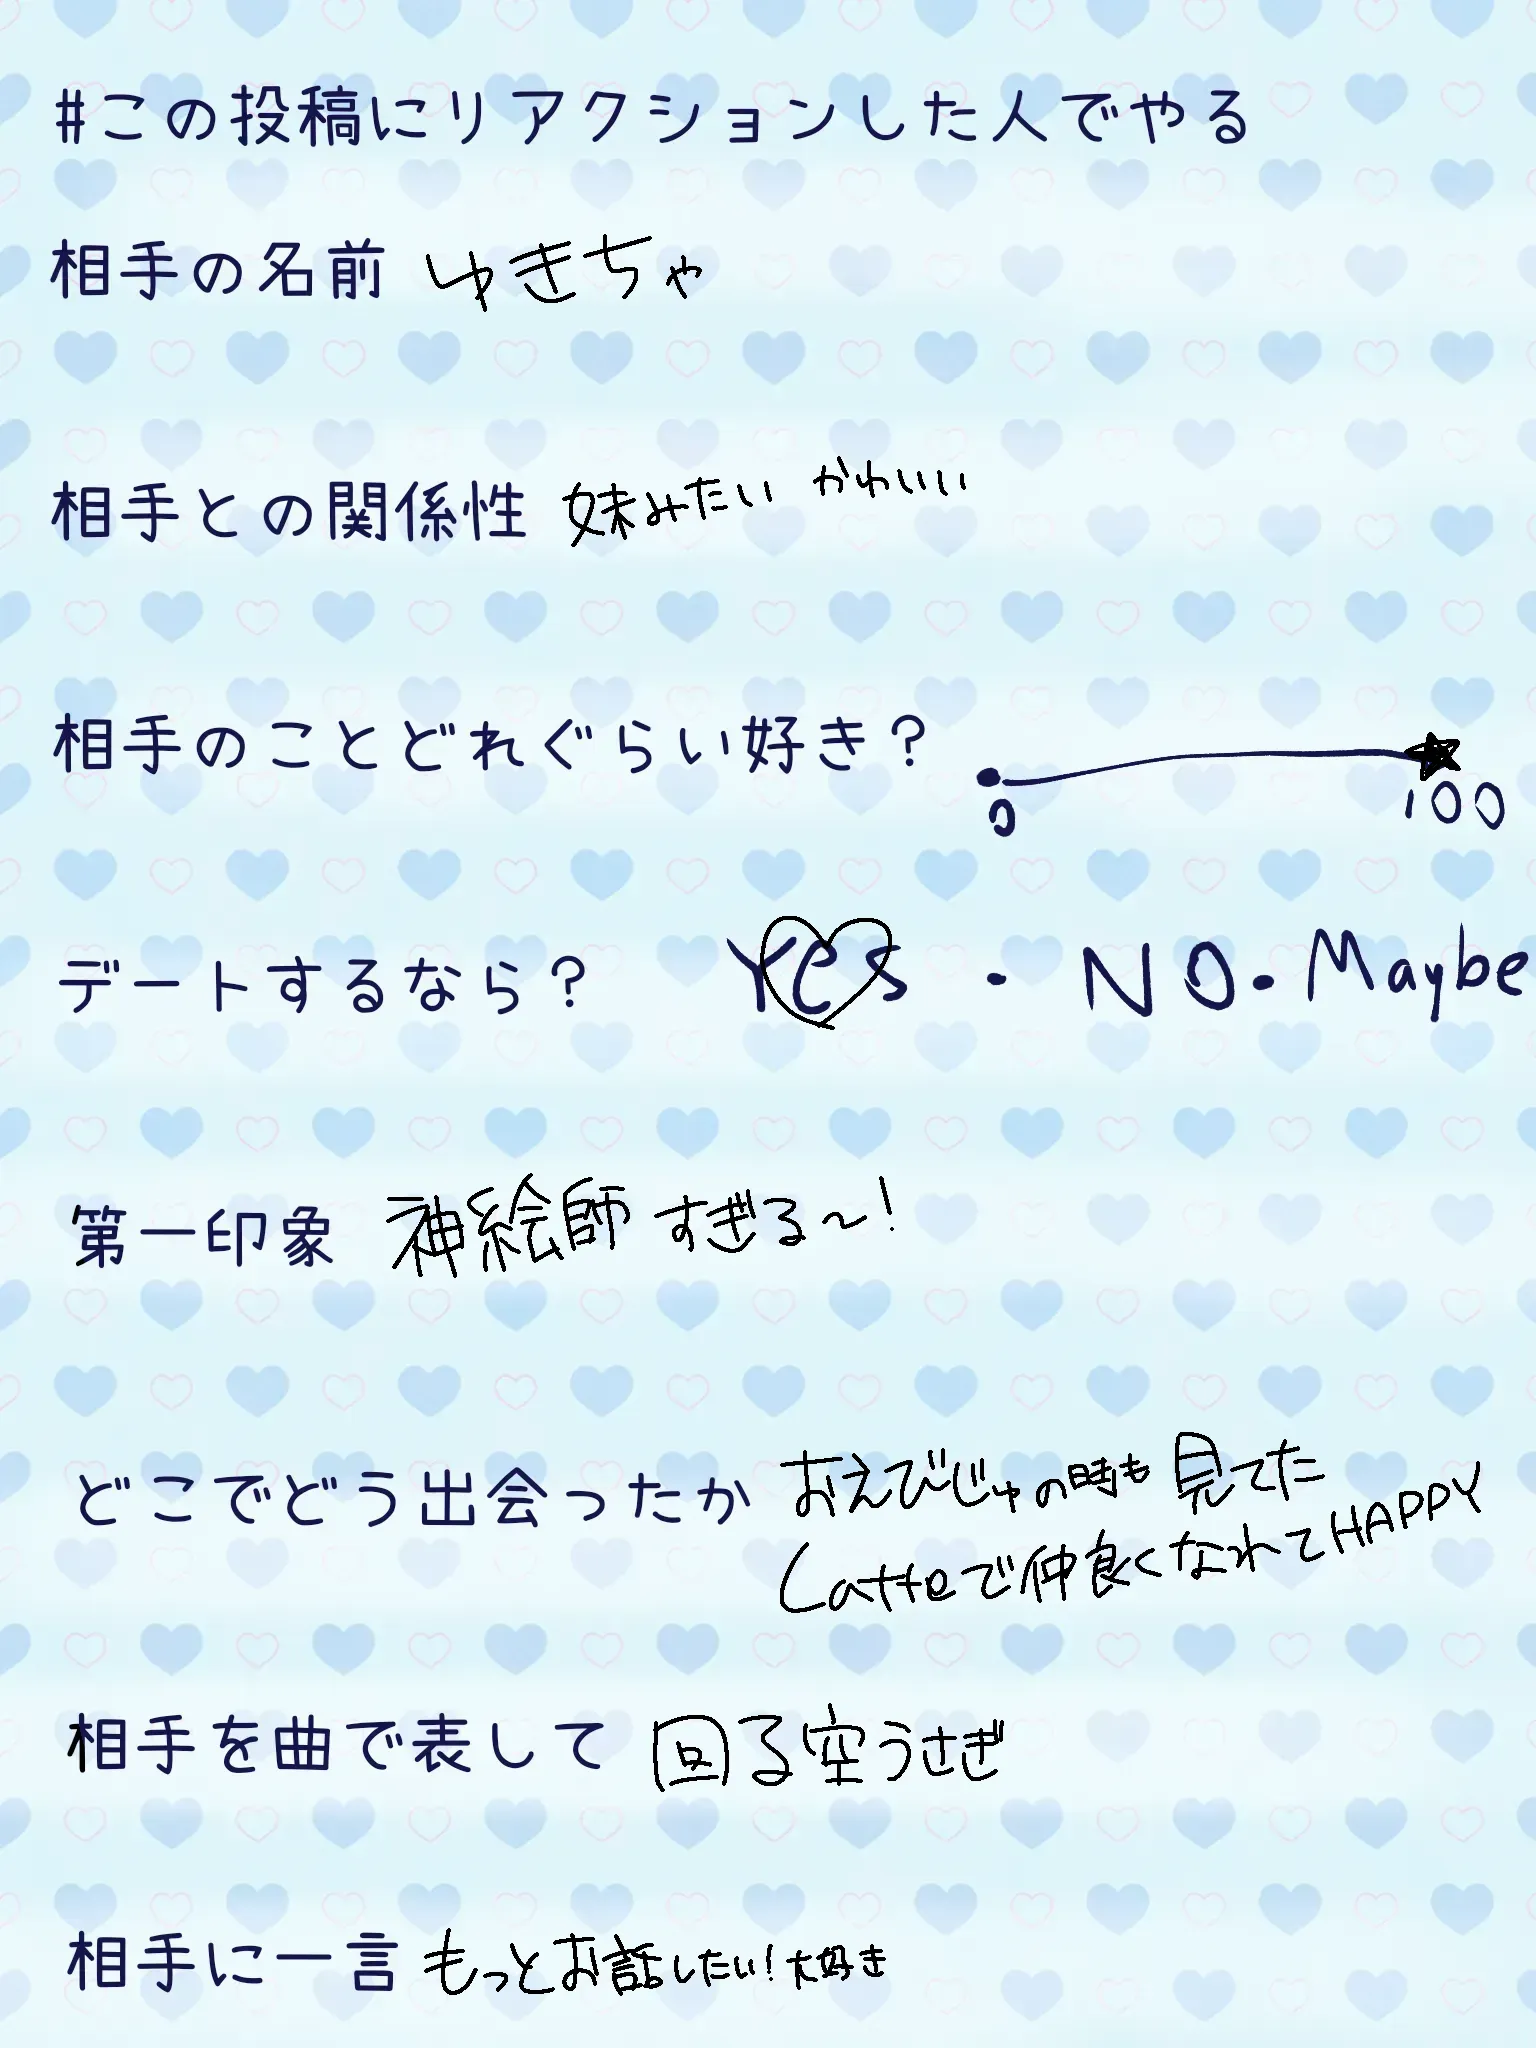 #この投稿にリアクションした人でやる
相手の名前 ゆきちゃ
相手との関係性 妹みたい かわいい
相手のことどれぐらい好き?
0 100
デートするなら? Yes・NO・Maybe
第一印象 神絵師すぎる〜!
どこでどう出会ったか おえびじゅの時も見てた
Latteで仲良くなれてHAPPY
相手を曲で表して 回る空うさぎ
相手に一言 もっとお話したい!大好き